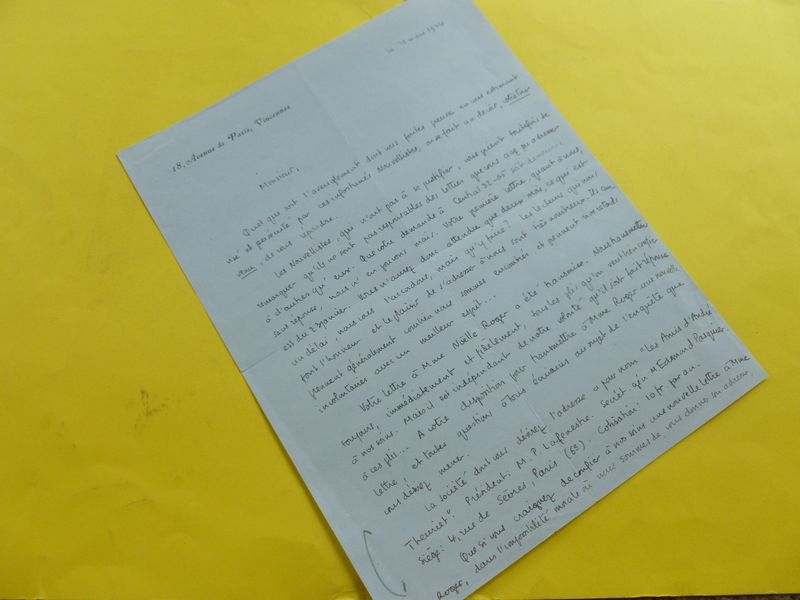 18, Avenue de Paris, Vincennes
le 9 mars 1924
Monsieur,
Quel que soit l'aveuglement dont vous faites preuve en vous estimant
visé et persécuté par ces infortunés Nouvellistes, on se fait un devoir,
vieux, de vous répondre.
Les Nouvellistes, qui n'ont pas à se justifier, vous prient toutefois de
remarquer qu'ils ne sont pas responsables des lettres que vous avez pu adresser
à d'autres qu'eux. Que votre demande à Central 32-65 soit demeurée
sans réponse, nous n'en pouvons mais. Votre première lettre, quant à nous,
est du 2 janvier. Vous n'aurez donc attendu que deux mois, ce qui est
un délai, nous vous l'accordons, mais qu'y faire? Les lecteurs qui nous
font l'honneur et le plaisir de s'adresser à nous sont très nombreux. Ils com
prennent généralement combien nous sommes encombrés et prennent nos retards
involontaires avec un meilleur esprit...
Votre lettre à Mme Noëlle Roger a été transmise. Nous transmettons
toujours, immédiatement et fidèlement, toutes plis qu'on veut bien confier
à nos soins. Mais il est indépendant de notre volonté qu'il soit fait réponse
à ces plis... A votre disposition pour transmettre à Mme Roger une nouvelle
lettre, et toutes questions à tous écrivains au sujet de l'enquête que
vous désirez mener.
La société dont vous désirez l'adresse a pour nom "Les Amis d'André
Theuriet". Président: M. P. Lafenestre. Secrét. gén. M. Edmond Pasquier.
Siège: 4, rue de Sèvres, Paris (6e). Cotisation: 10 fr par an.
Que si vous craignez de confier à nos soins une nouvelle lettre à Mme
Roger, dans l'impossibilité morale où nous sommes de vous donner son adresse,